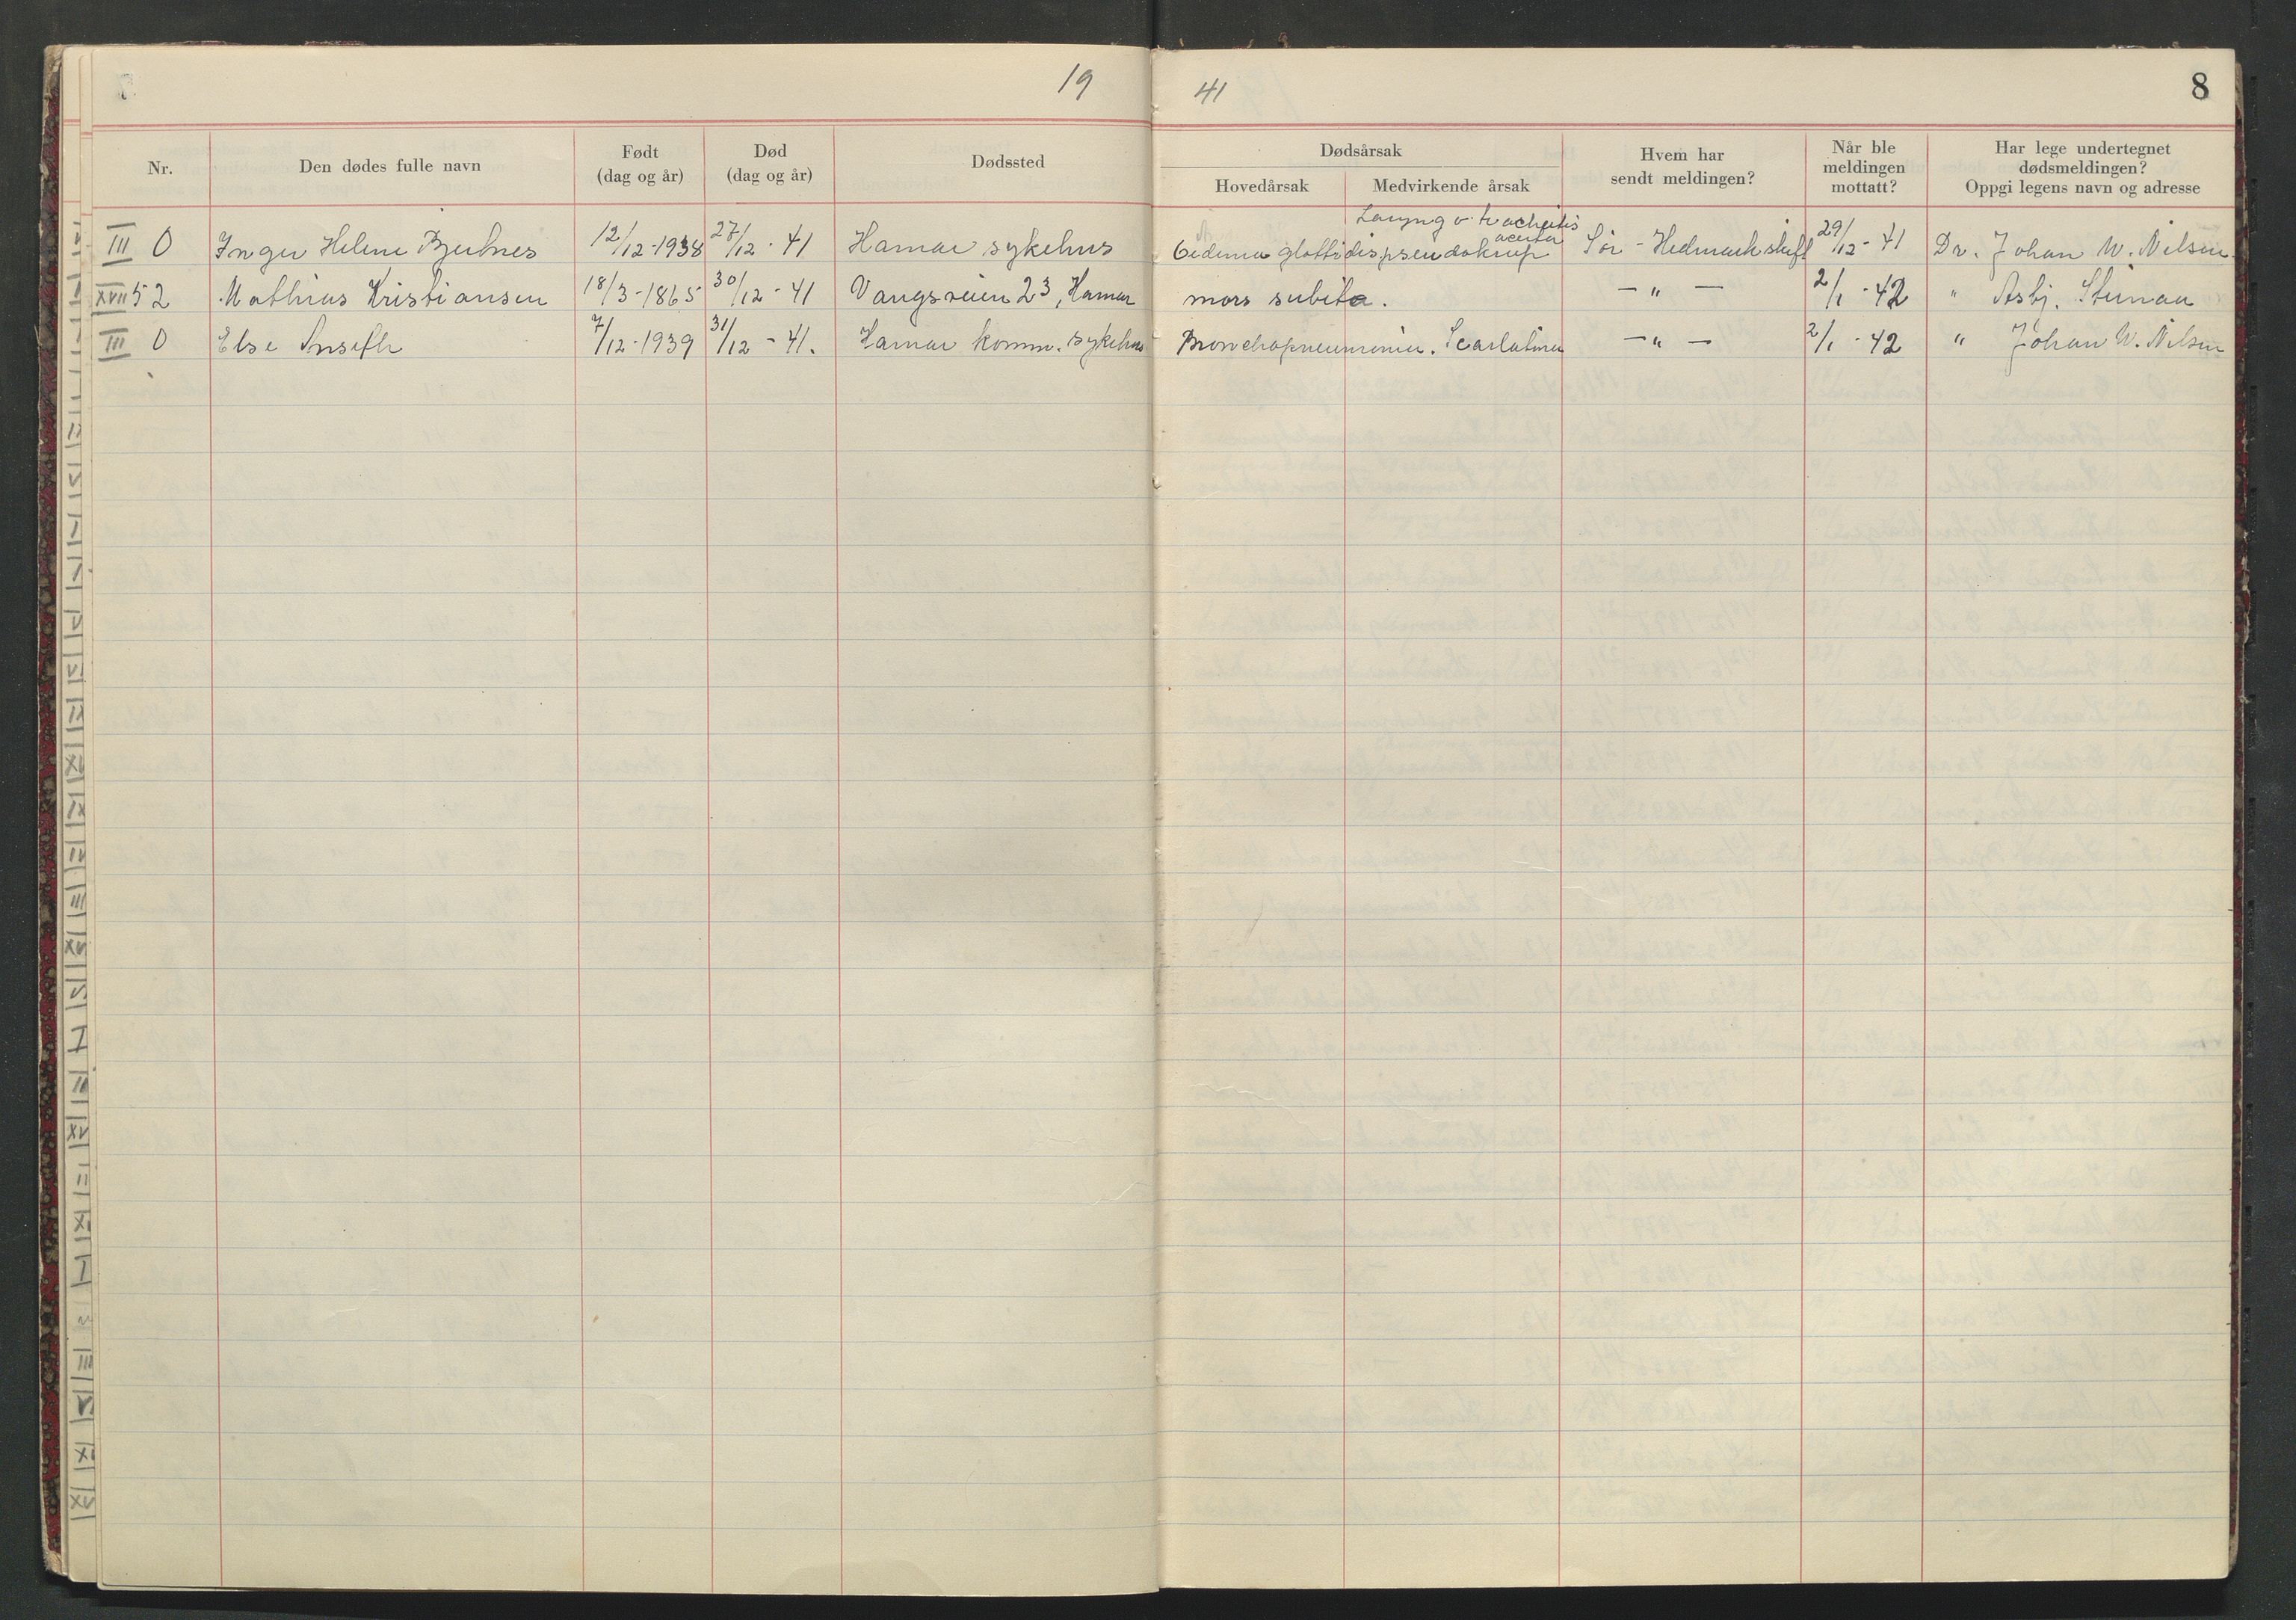 19 41 8
Nr. Den dødes fulle navn Født (dag og år) Død (dag og år) Dødssted Dødsårsak Hovedårsak Medvirkende årsak Hvem har sendt meldingen? Når ble meldingen mottatt? Har lege undertegnet dødsmeldingen? Oppgi legens navn og adresse
Laryngo-tracheitis
acuta
III 0 Inger Helene 12/12-1938 27/12-41 Hamar sykehus Oedema glottidis pseudokrup Sør-Hedmark skift 29/12-41 Dr. Johan W. Nilsen
XVII 52 Mathias Kristiansen 18/3-1865 30/12-41 Vangsveien 23, Hamar mors subita. -"- 2/1-42 " Asbj.
III 0 Else 7/12-1939 31/12-41. Hamar komm. sykehus Bronchopneumonia. Scarlatina -"- 2/1-42 " Johan W. Nilsen